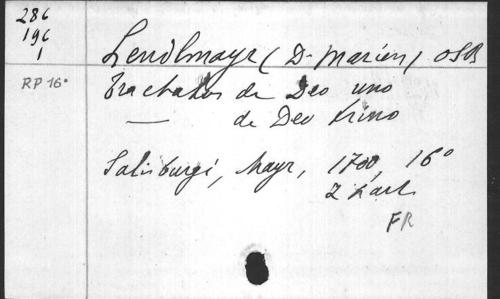 286
196
1
RP 16°
Lendlmayr (D. Marien) OSB
Tractatus de Deo uno
— de Deo trino
Salisburgi, Mayr, 1700, 16°
2 part
FR